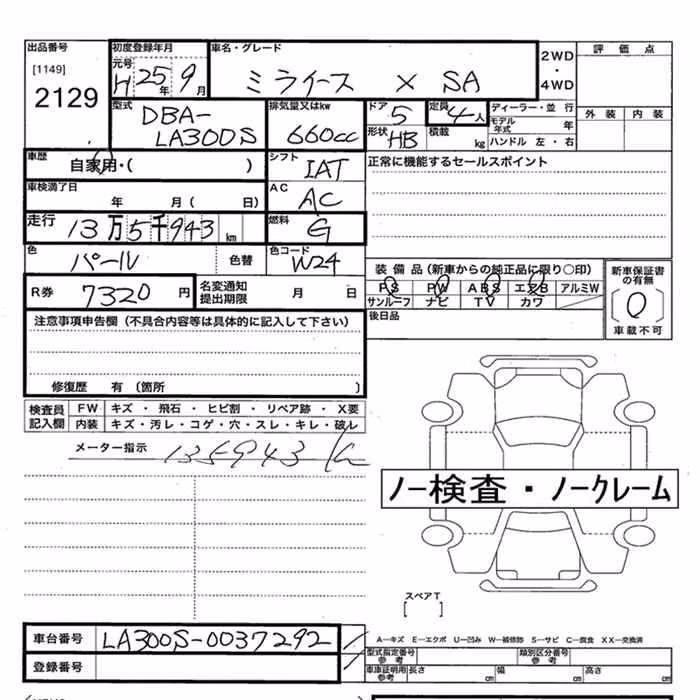 出品番号
[1149]
2129
初度登録年月
元号
H 25年 9月
車名・グレード
ミライース X SA
2WD
・
4WD
評価点
外装 内装
型式
DBA-
LA300S
排気量又はkw
660cc
ドア
5
形状
HB
定員
4人
積載 kg
ディーラー・並行
モデル年式 年
ハンドル 左・右
車歴
自家用・( )
シフト
IAT
正常に機能するセールスポイント
車検満了日
年 月( 日)
AC
AC
走行
13万5千943km
燃料
G
色
パール
色替
色コード
W24
R券
7320円
名変通知
提出期限
月 日
装備品(新車からの純正品に限り○印)
PS PW ABS エアB アルミW
サンルーフ ナビ TV カワ
後日品
新車保証書
の有無
[0]
車載不可
注意事項申告欄(不具合内容等は具体的に記入して下さい)
修復歴 有(箇所 )
検査員
記入欄
FW キズ・飛石・ヒビ割・リペア跡・X要
内装 キズ・汚レ・コゲ・穴・スレ・キレ・破レ
メーター指示
135943
ノー検査・ノークレーム
スペアT
[ ]
車台番号
LA300S-0037292
登録番号
A―キズ E―エクボ U―凹み W―補修跡 S―サビ C―腐食 XX―交換済
型式指定番号
参考
類別区分番号
参考
車庫証明用
参考
長さ cm
幅 cm
高さ cm